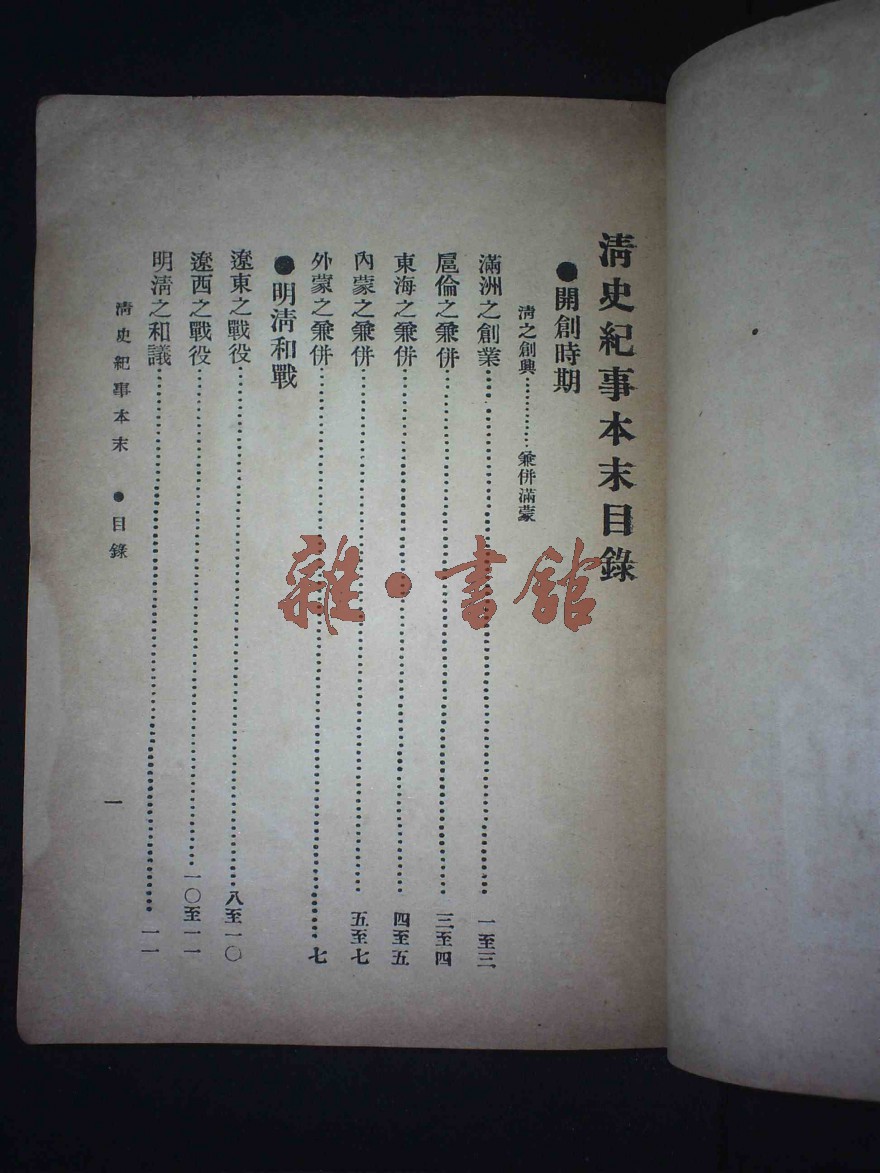 清史紀事本末目錄
●開創時期
清之創興…………兼併滿蒙
滿洲之創業……一至三
扈倫之兼併……三至四
東海之兼併……四至五
內蒙之兼併……五至七
外蒙之兼併……七
●明清和戰
遼東之戰役……八至一〇
遼西之戰役……一〇至一一
明清之和議……一一
清史紀事本末 ●目錄 一
雜•書館